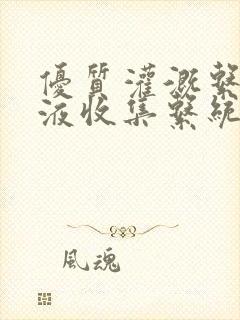 優質灌溉繫
液收集繫統
風魂